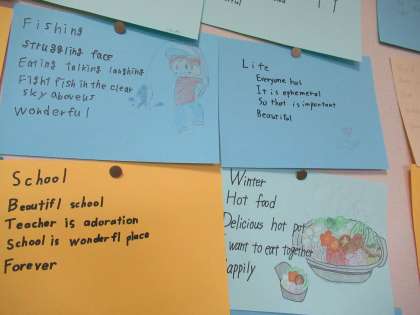 Fishing
Struggling face
Eating talking laughing
Fight fish in the clear
sky above us
Wonderful
Life
Everyone has
It is ephemeral
So that is important
Beautiful
School
Beautifl school
Teacher is adoration
School is wonderfl place
Forever
Winter
Hot food
Delicious hot pot
I want to eat together
Happily